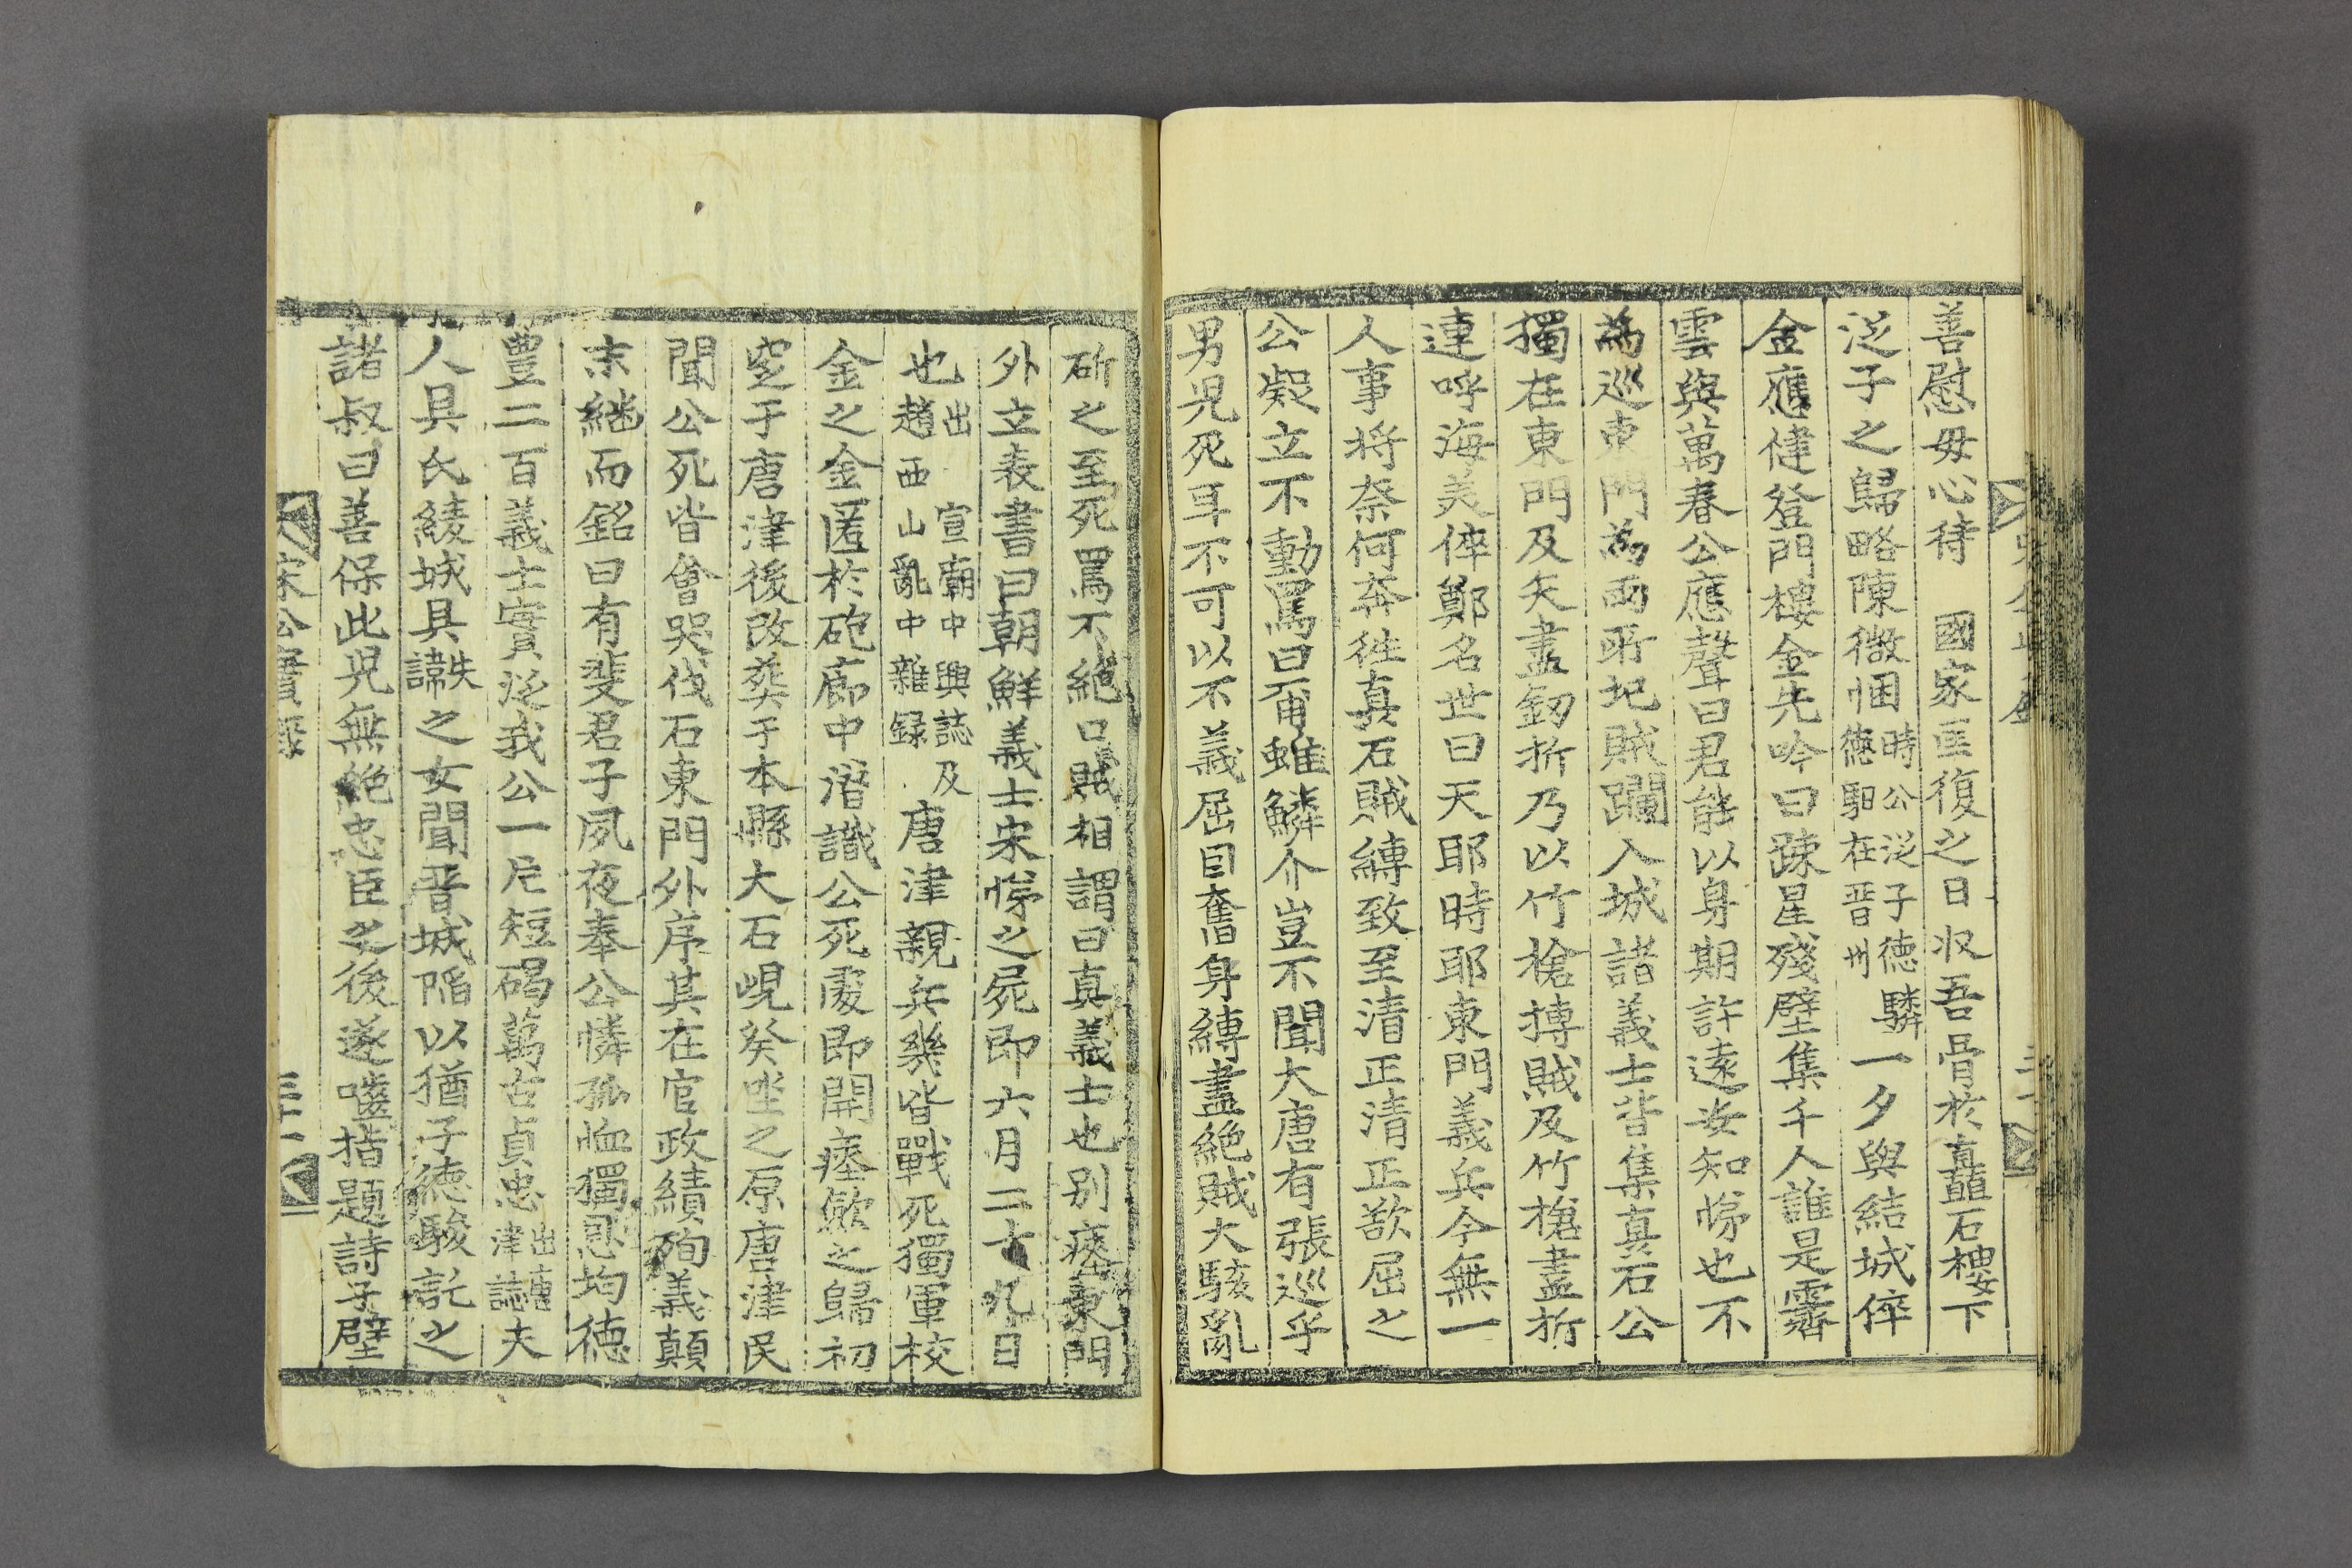 善慰母心待 國家匡復之日收吾骨於矗石樓下
從子之歸略陳微悃時公從子德驎德馹在晋州一夕與結城倅
金應健登門樓金先吟曰踈星殘壁集千人誰是霽
雲與萬春公應聲曰君能以身期許遠安知悌也不
爲巡東門爲兩所圮賊躝入城諸義士皆集眞石公
獨在東門及矢盡釼折乃以竹槍搏賊及竹槍盡折
連呼海美倅鄭名世曰天耶時耶東門義兵今無一
人事將柰何奔徃眞石賊縛致至淸正淸正欲屈之
公凝立不動罵曰甭雖鱗介豈不聞大唐有張巡乎
男兒死耳不可以不義屈目奮身縛盡絶賊大駭亂
斫之至死罵不絶口賊相謂曰真義士也别瘞東門
外立表書曰朝鮮義士宋悌之屍即六月二十九日
也出 宣廟中興誌及趙西山亂中雜録唐津親兵幾皆戰死獨軍校
金之金匿於砲廊中潜識公死處即開瘞歛之歸初
窆于唐津後改葬于本縣大石峴癸坐之原唐津民
聞公死皆會哭伐石東門外序其在官政績殉義顚
末継而銘曰有斐君子夙夜奉公憐孤恤獨恩均德
豊二百義士實從我公一片短碣萬古貞忠出唐津誌夫
人具氏綾城具諱失之女聞晋城陷以猶子德駿託之
諸叔曰善保此兒無絶忠臣之後遂囓指題詩于壁
宋公實録
三十一